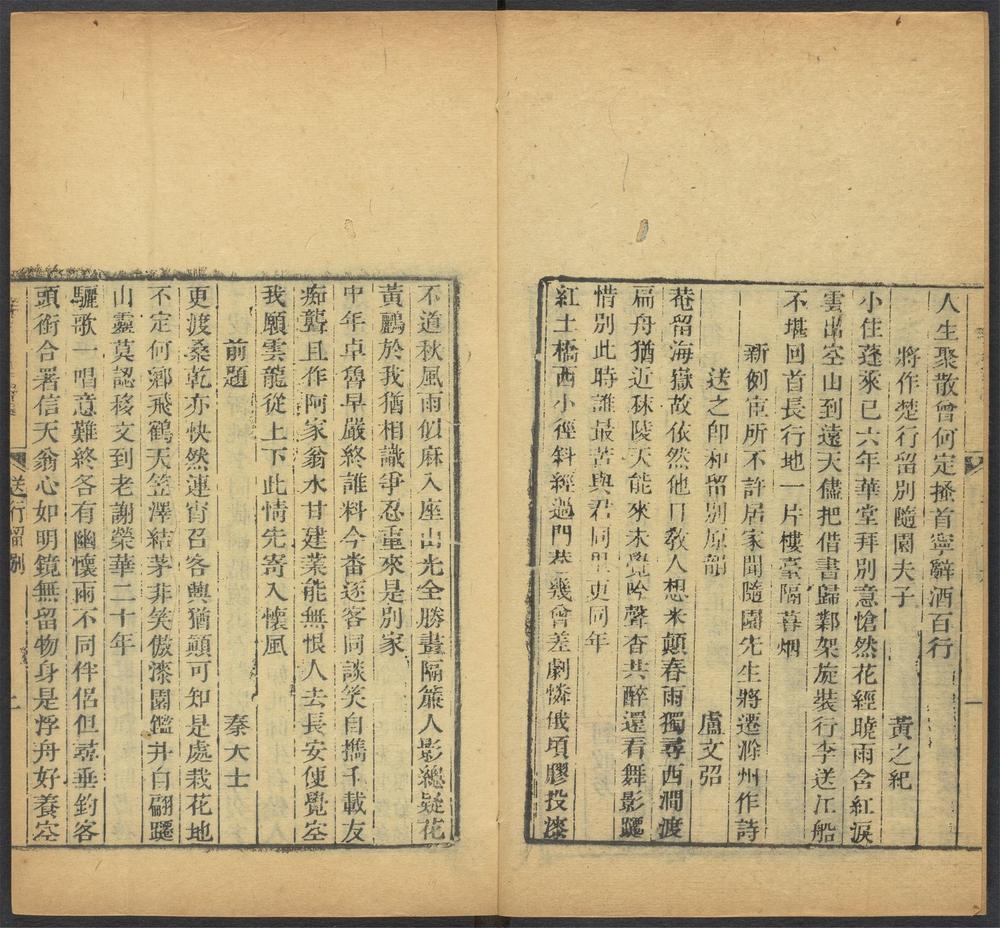 人生聚散曾何定搔首寧辭酒百行
將作楚行留別隨園夫子 黃之紀
小住蓬萊已六年華堂拜別意愴然花經曉雨含紅淚
雲出空山到遠天儘把借書歸鄴架旋裝行李送江船
不堪回首長行地一片樓臺隔暮烟
新例宦所不許居家聞隨園先生將遷滁州作詩
送之即和留別原韻 盧文弨
菴留海嶽故依然他日敎人想米顛春雨獨尋西澗渡
扁舟猶近秣陵天能來未覺吟聲杳共醉還看舞影躚
惜別此時誰最苦與君同里更同年
紅土橋西小徑斜經過門巷幾曾差劇憐俄頃膠投漆
不道秋風雨似麻入座山光全勝畫隔簾人影總疑花
黃鸝於我猶相識爭忍重來是別家
中年卓魯早嚴終誰料今畨逐客同談笑自擕千載友
痴聾且作阿家翁水甘建業能無恨人去長安便覺空
我願雲龍從上下此情先寄入懷風
前題 秦大士
更渡桑乾亦快然連宵召客興猶顛可知是處栽花地
不定何鄉飛鶴天笠澤結茅非笑傲漆園鑑井自翩躚
山靈莫認移文到老謝榮華二十年
驪歌一唱意難終各有幽懷兩不同伴侶但尋垂釣客
頭銜合署信天翁心如明鏡無留物身是浮舟好養空
送行留別